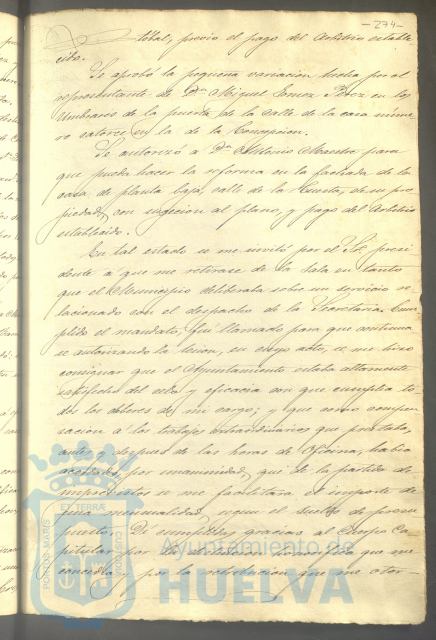 -274-
tobal, previo el pago del Arbitrio estable
cido.
Se aprobó la pequeña variacion hecha por el
representante de Dn Miguel Gomez Perez en los
Umbrales de la puerta de la calle de la casa núme
ro catorce en la de la Concepcion.
Se autorizó a Dn Antonio Maestre para
que pueda hacer la reforma en la fachada de la
casa de planta baja, calle de la Cuesta, de su pro
piedad, con sugecion al plano, y pago del Arbitrio
establecido.
En tal estado se me invitó por el Sr presi
dente a que me retirase de la Sala en tanto
que el Municipio deliberaba sobre un servicio re
lacionado con el despacho de la Secretaria. Cum
plido el mandato, fui llamado para que continua
se autorizando la sesion, en cuyo acto, se me hizo
consignar que el Ayuntamiento estaba altamente
satisfecho del celo y eficacia con que cumplia to
dos los deberes de mi cargo; y que como compen
sacion a los trabajos extraordinarios que prestaba,
antes y despues de las horas de Oficina, habia
acordado, por unanimidad, que de la partida de
imprevistos se me facilitara el importe de
una mensualidad, segun el sueldo de presu
puestos. Di cumplidas gracias al Cuerpo Ca
pitular por la que me
concedia, y por la retribucion que me otor
PORTUS MARIS
ET TERRÆ
CUSTODIA
Ayuntamiento de
HUELVA